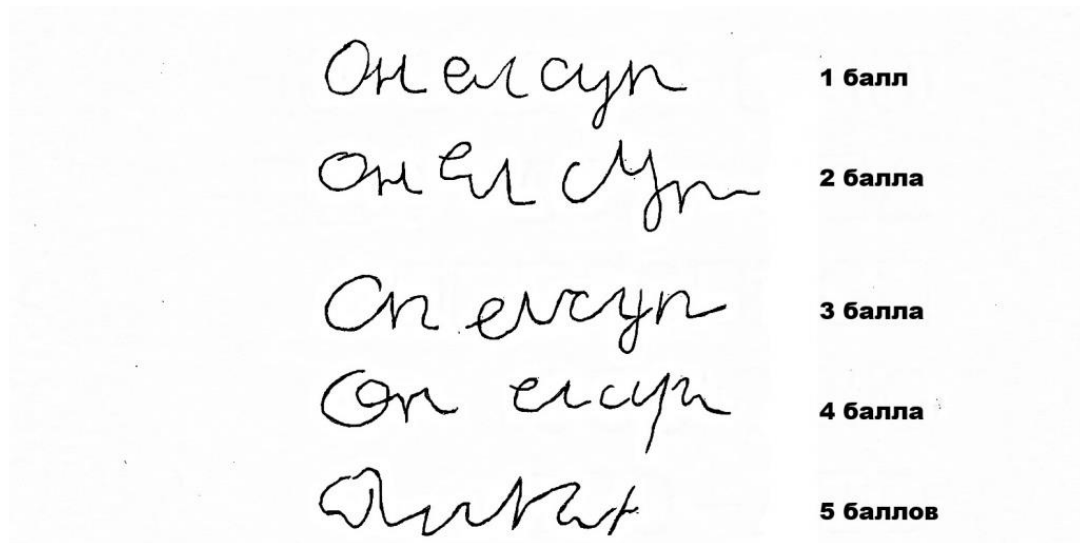 Он ел суп 1 балл
он ел суп 2 балла
Он ел суп 3 балла
Он ел суп 4 балла
5 баллов